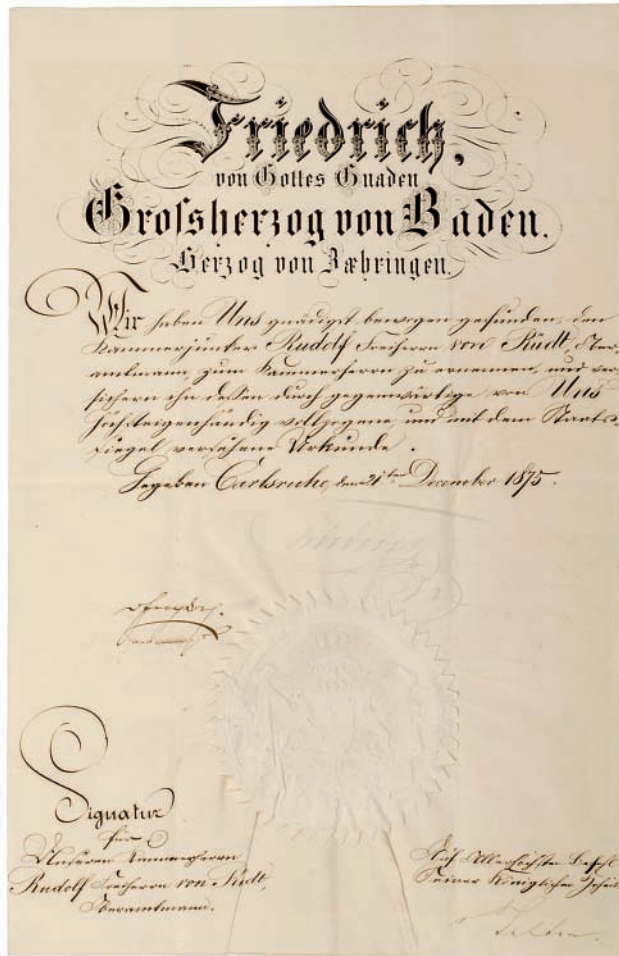 Friedrich,
von Gottes Gnaden
Grossherzog von Baden.
Herzog von Zæhringen.
Wir haben Uns gnädigst bewogen gefunden, den
Kammerjunker Rudolf Freiherrn von Rüdt, Ober-
amtmann, zum Kammerherrn zu ernennen, und ver-
sichern ihn dessen durch gegenwärtige von Uns
höchsteigenhändig vollzogene und mit dem Staats-
siegel versehene Urkunde.
Gegeben Carlsruhe, den 21ten December 1875.
Signatur
für
Unseren Kammerherrn
Rudolf Freiherrn von Rüdt,
Oberamtmann.
Auf Allerhöchsten Befehl
Seiner Königlichen Hoheit